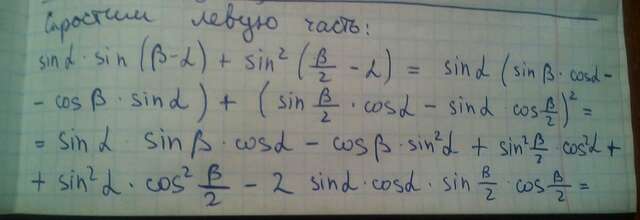 Упростим левую часть:
sinα · sin (β-α) + sin² (β/2 - α) = sinα (sinβ · cosα -
- cosβ · sinα) + (sin β/2 · cosα - sinα cos β/2)² =
= sinα · sinβ · cosα - cosβ · sin²α + sin² β/2 · cos²α +
+ sin²α · cos² β/2 - 2 sinα · cosα · sin β/2 · cos β/2 =